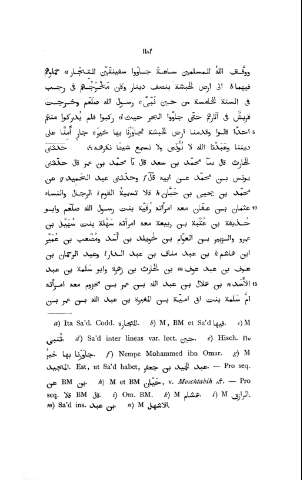 ١١٨٢
ووفّق اللّٰه للمسلمين ساعة جاووا سفينتين للتجار a حملوهم
فيهما b الى ارض الحبشة بنصف دينار وكان مخرجهم c في رجب
في السنة الخامسة من حين d نُبّئ e رسول اللّٰه صلّعم وخرجت
قريش في آثارهم حتى جاووا البحر حيث c ركبوا فلم يدركوا منهم
احدًا قالوا وقدمنا ارض الحبشة فجاورنا بها خير f جار أَمِنَّا على
ديننا وعبدنا اللّٰه لا نُؤْذى ولا نسمع شيئا نكرهه، حدثنى
الحارث قال سا محمد بن سعد قال نا محمد بن عمر قال حدّثنى
يونس بن محمد عن ابيه قال وحدّثنى عبد الحميد g عن
محمد بن يحيى بن حَبّان h قالا تسمية القوم i الرجال والنساء
عثمان بن عفّان معه امرأته رُقَيّة بنت رسول اللّٰه صلّعم وابو
حذيفة بن عُتْبة بن ربيعة معه امرأته سَهْلة بنت سُهَيل بن
عمرو والزبير بن العوّام بن خويلد بن أَسَد ومُصْعَب بن عُمَيْر
ابن هاشم k بن عبد مناف بن عبد الدار l وعبد الرحمان بن
عوف بن عبد عوف m بن الحارث بن زهرة وابو سلمة بن عبد
الأسد n بن هلال بن عبد اللّٰه بن عمر بن مخزوم معه امرأته
امّ سلمة بنت ابى اميّة بن المغيرة بن عبد اللّٰه بن عمر بن
a) Ita Sa'd. Codd. التجارة. b) M, BM et Sa'd فيها. c) M
d) Sa'd inter lineas var. lect. حين. e) Hisch.
f) Nempe Mohammed ibn Omar. g) M
Est, ut Sa'd habet, عبد الحميد بن جعفر. — Pro seq.
عن BM بن. h) M et BM v. Moschtabih — Pro
seq. قالا BM قال. i) Om. BM. k) M هشام. l) M
m) Sa'd ins. بن عبد. n) M الاشهل.